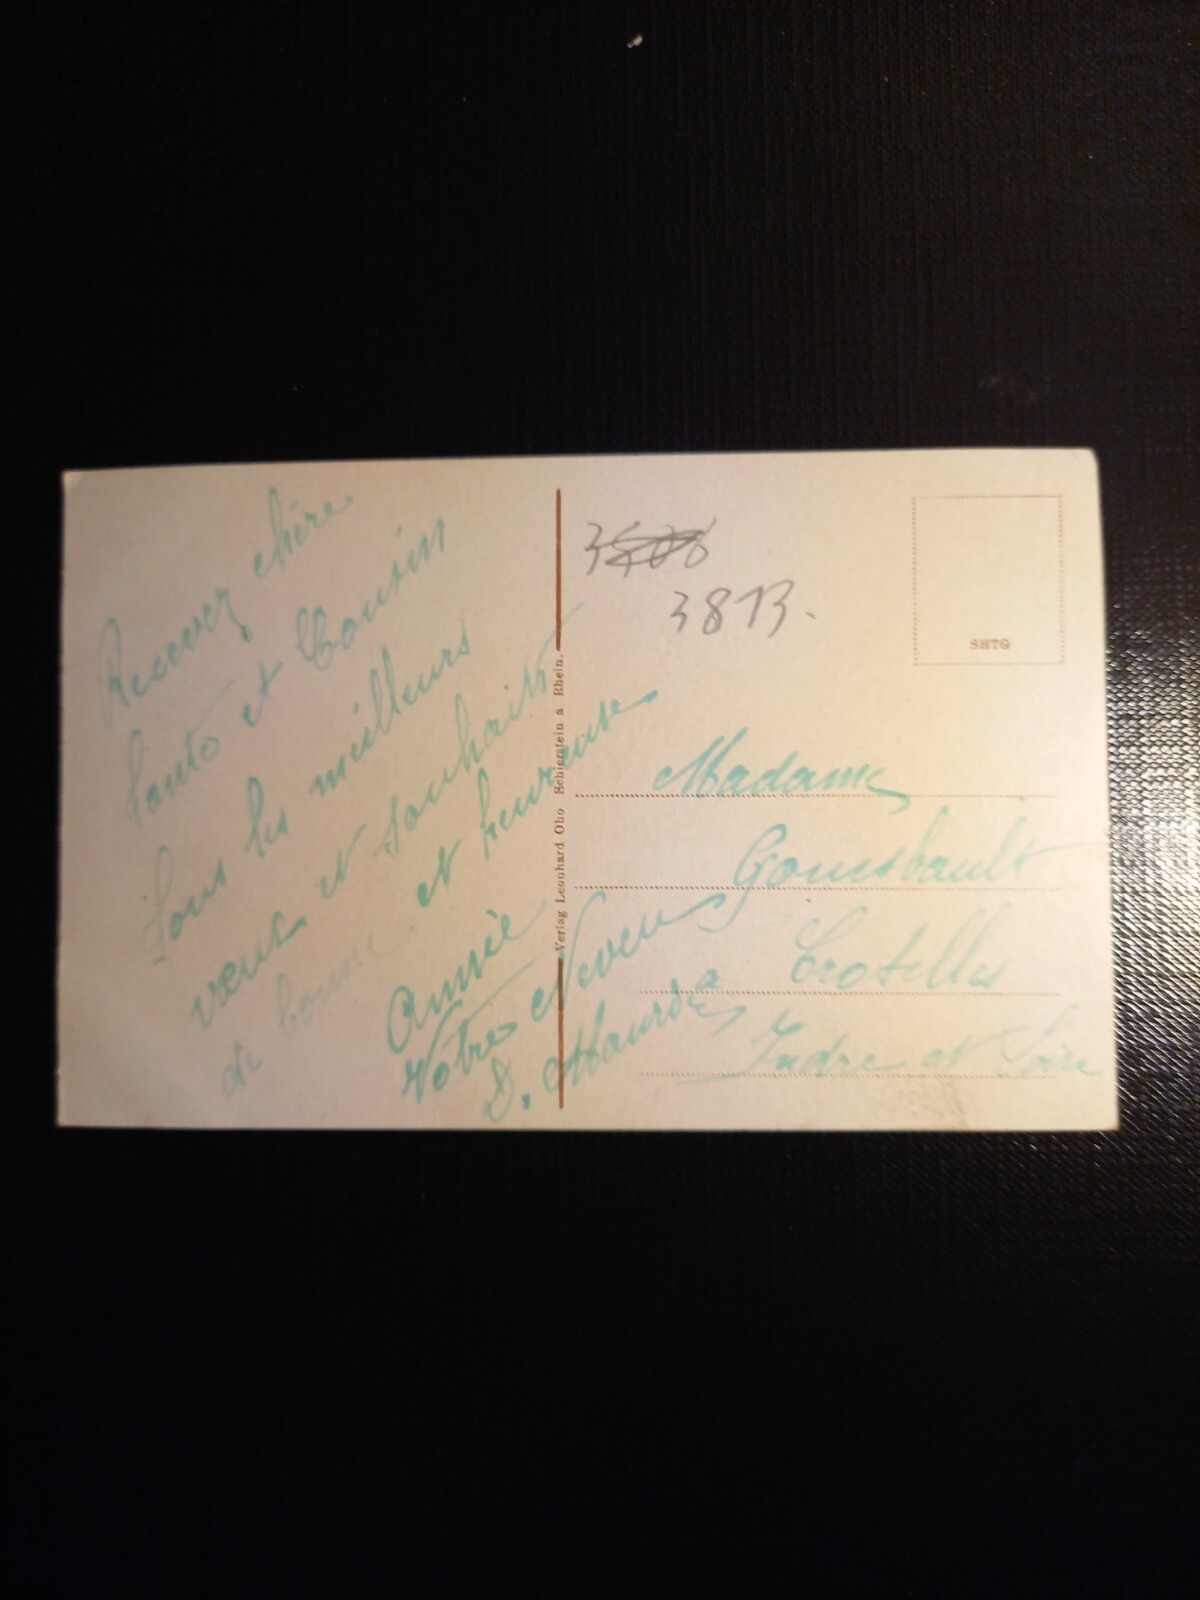 Recevez chère
tante et Cousin
tous les meilleurs
vœux et souhaits
de bonne et heureuse
Année
Votre Neveu
D.
Verlag Leonhard Oho Schierstein a Rhein.
3813.
SHTG
Madame
à Crotelles
Indre et Loire